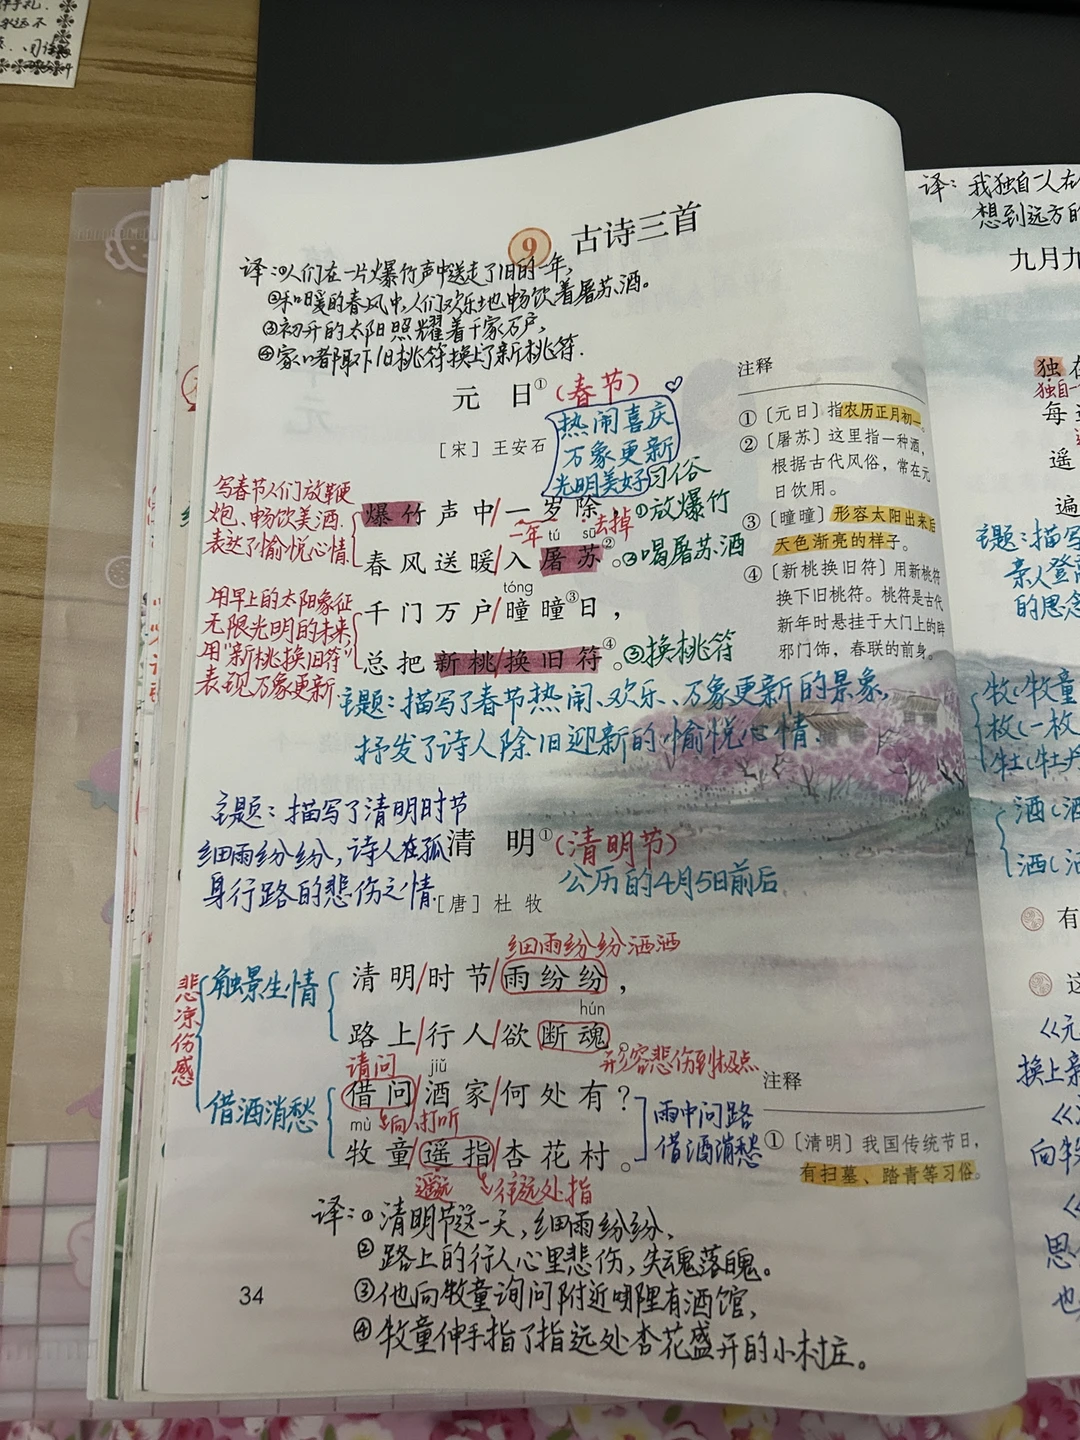 9 古诗三首
译:①人们在一片爆竹声中送走了旧的一年,
②和暖的春风中,人们欢乐地畅饮着屠苏酒。
③初升的太阳照耀着千家万户,
④家家都取下旧桃符换上了新桃符.
元 日①(春节)
热闹喜庆
万象更新
光明美好
[宋] 王安石
写春节人们放鞭
炮、畅饮美酒.
表达了愉悦心情.
习俗
爆竹声中/一岁除,①放爆竹
一年 去掉
tú sū
春风送暖/入屠苏②。②喝屠苏酒
用早上的太阳象征
无限光明的未来,
用"新桃换旧符"
表现万象更新.
tóng
千门万户/曈曈③日,
总把新桃/换旧符④。③换桃符
主题:描写了春节热闹、欢乐、万象更新的景象,
抒发了诗人除旧迎新的愉悦心情.
注释
①〔元日〕指农历正月初一。
②〔屠苏〕这里指一种酒,
根据古代风俗,常在元
日饮用。
③〔曈曈〕形容太阳出来后
天色渐亮的样子。
④〔新桃换旧符〕用新桃符
换下旧桃符。桃符是古代
新年时悬挂于大门上的辟
邪门饰,春联的前身。
主题:描写了清明时节
细雨纷纷,诗人在孤
身行路的悲伤之情.
清 明①(清明节)
公历的4月5日前后
[唐] 杜 牧
悲凉伤感
触景生情
借酒消愁
细雨纷纷洒洒
清明/时节/雨纷纷,
hún
路上/行人/欲断魂。
形容悲伤到极点
请问 jiǔ
借问/酒家/何处有?
mù 询问/打听
牧童/遥指/杏花村。
遥远 往远处指
雨中问路
借酒消愁
注释
①〔清明〕我国传统节日,
有扫墓、踏青等习俗。
译:①清明节这一天,细雨纷纷,
②路上的行人心里悲伤,失魂落魄。
③他向牧童询问附近哪里有酒馆,
④牧童伸手指了指远处杏花盛开的小村庄。
34
译:我独自一人在
想到远方的
九月九
独在
独自一
每
遥
遍
主题:描写
亲人登高
的思念
牧(牧童
枚(一枚
牡(牡丹
酒(酒
洒(洒
有
这
《元
换上新
向牧
思
也